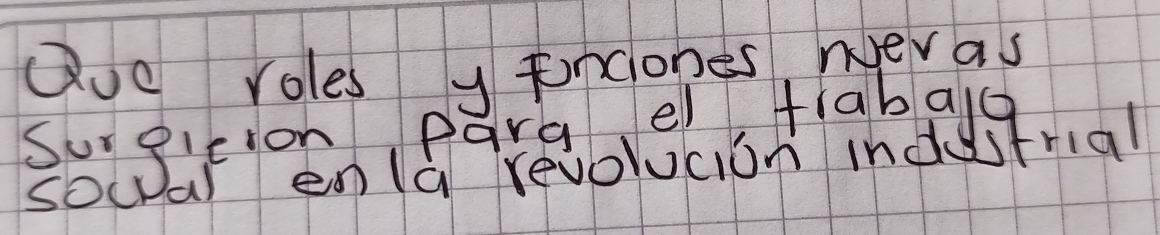 Que roles y funciones nuevas
surgieron para el trabajo
social en la revolución industrial